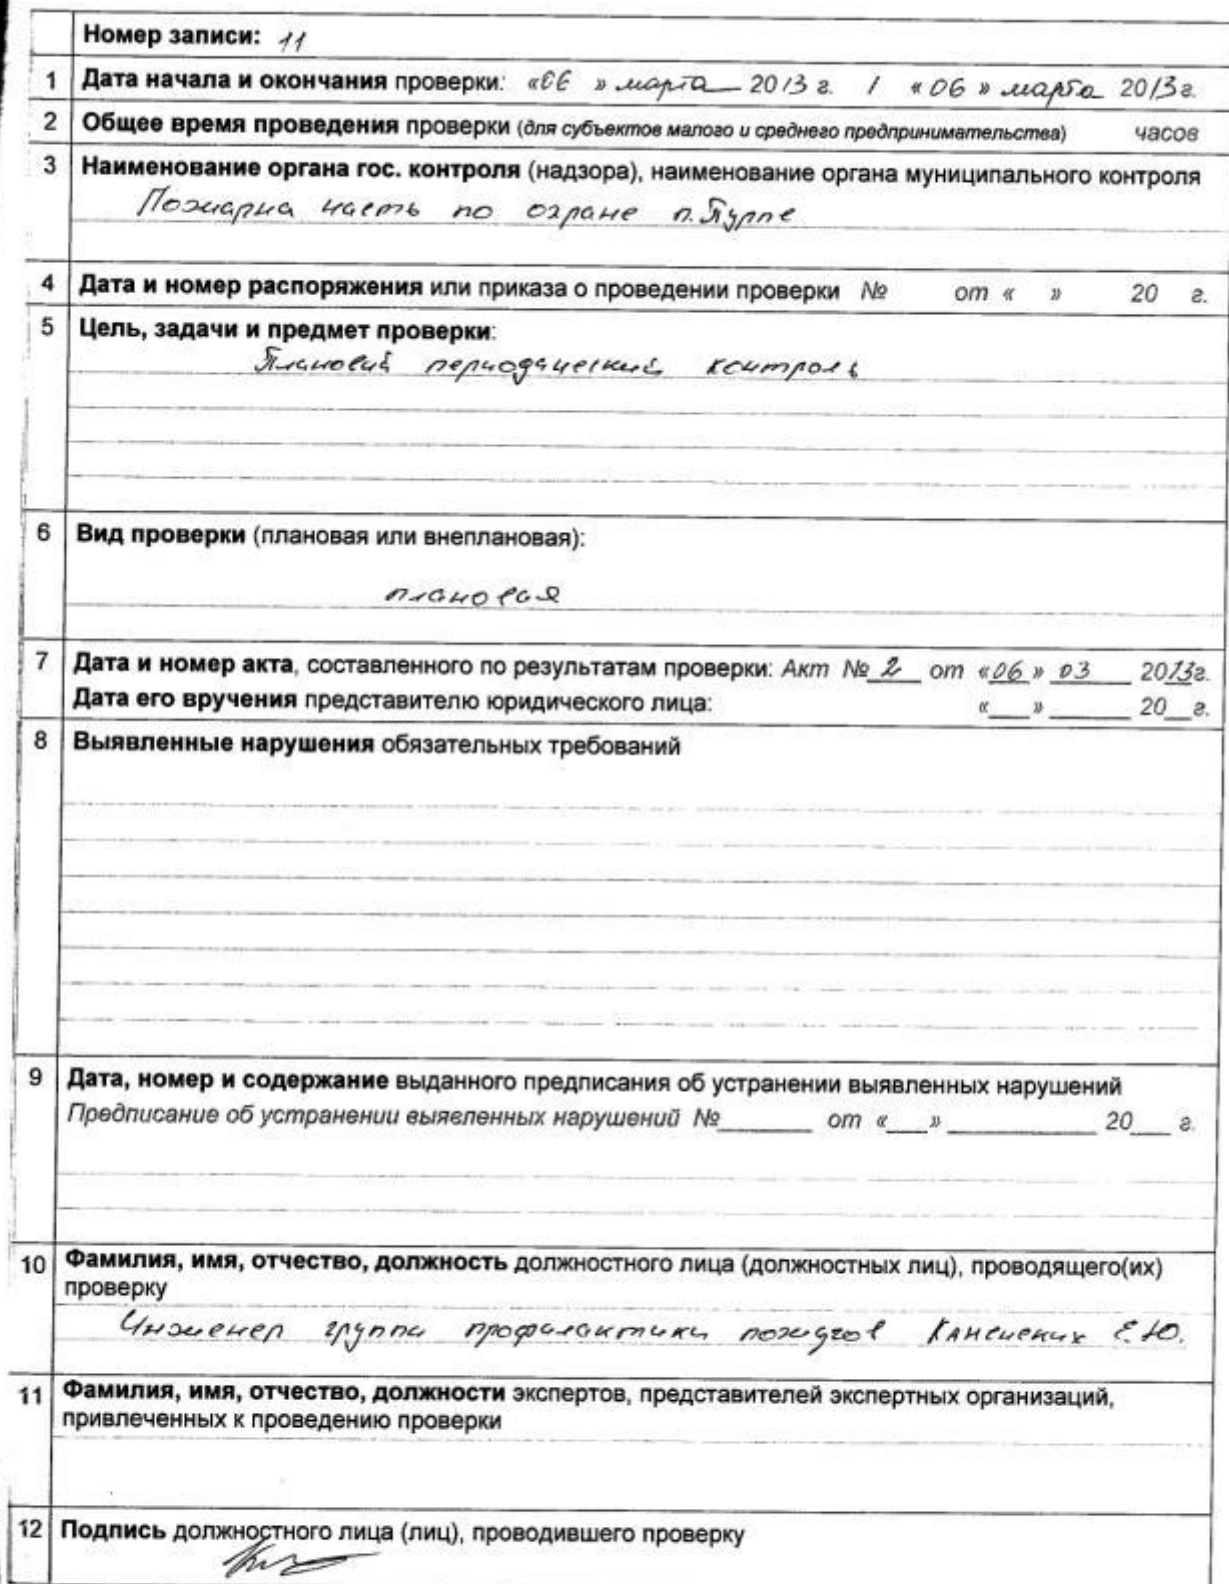 Номер записи: 11
1 Дата начала и окончания проверки: «06 » марта 2013 г. / «06 » марта 2013г.
2 Общее время проведения проверки (для субъектов малого и среднего предпринимательства) часов
3 Наименование органа гос. контроля (надзора), наименование органа муниципального контроля
Пожарна часть по охране п. Пурпе
4 Дата и номер распоряжения или приказа о проведении проверки № от « » 20 г.
5 Цель, задачи и предмет проверки:
Плановый периодический контроль
6 Вид проверки (плановая или внеплановая):
плановая
7 Дата и номер акта, составленного по результатам проверки: Акт № 2 от «06» 03 2013г.
Дата его вручения представителю юридического лица: «___» ______ 20__г.
8 Выявленные нарушения обязательных требований
9 Дата, номер и содержание выданного предписания об устранении выявленных нарушений
Предписание об устранении выявленных нарушений №_______ от «___» ___________ 20___ г.
10 Фамилия, имя, отчество, должность должностного лица (должностных лиц), проводящего(их)
проверку
Инженер группы профилактики пожаров Е.Ю.
11 Фамилия, имя, отчество, должности экспертов, представителей экспертных организаций,
привлеченных к проведению проверки
12 Подпись должностного лица (лиц), проводившего проверку